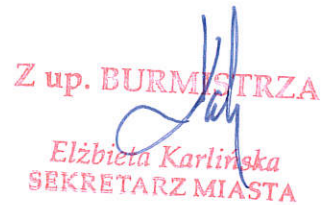 Z up. BURMISTRZA
Elżbieta Karlińska
SEKRETARZ MIASTA